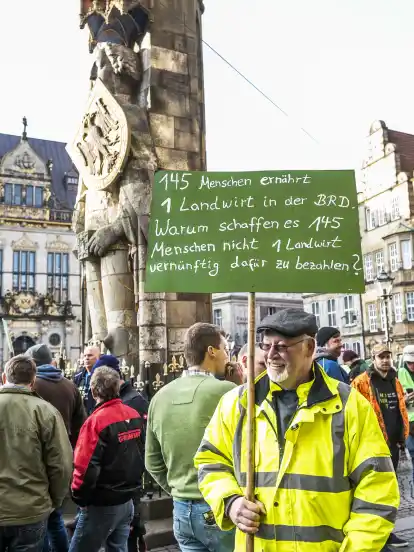 145 Menschen ernährt
1 Landwirt in der BRD.
Warum schaffen es 145
Menschen nicht 1 Landwirt
vernünftig dafür zu bezahlen?